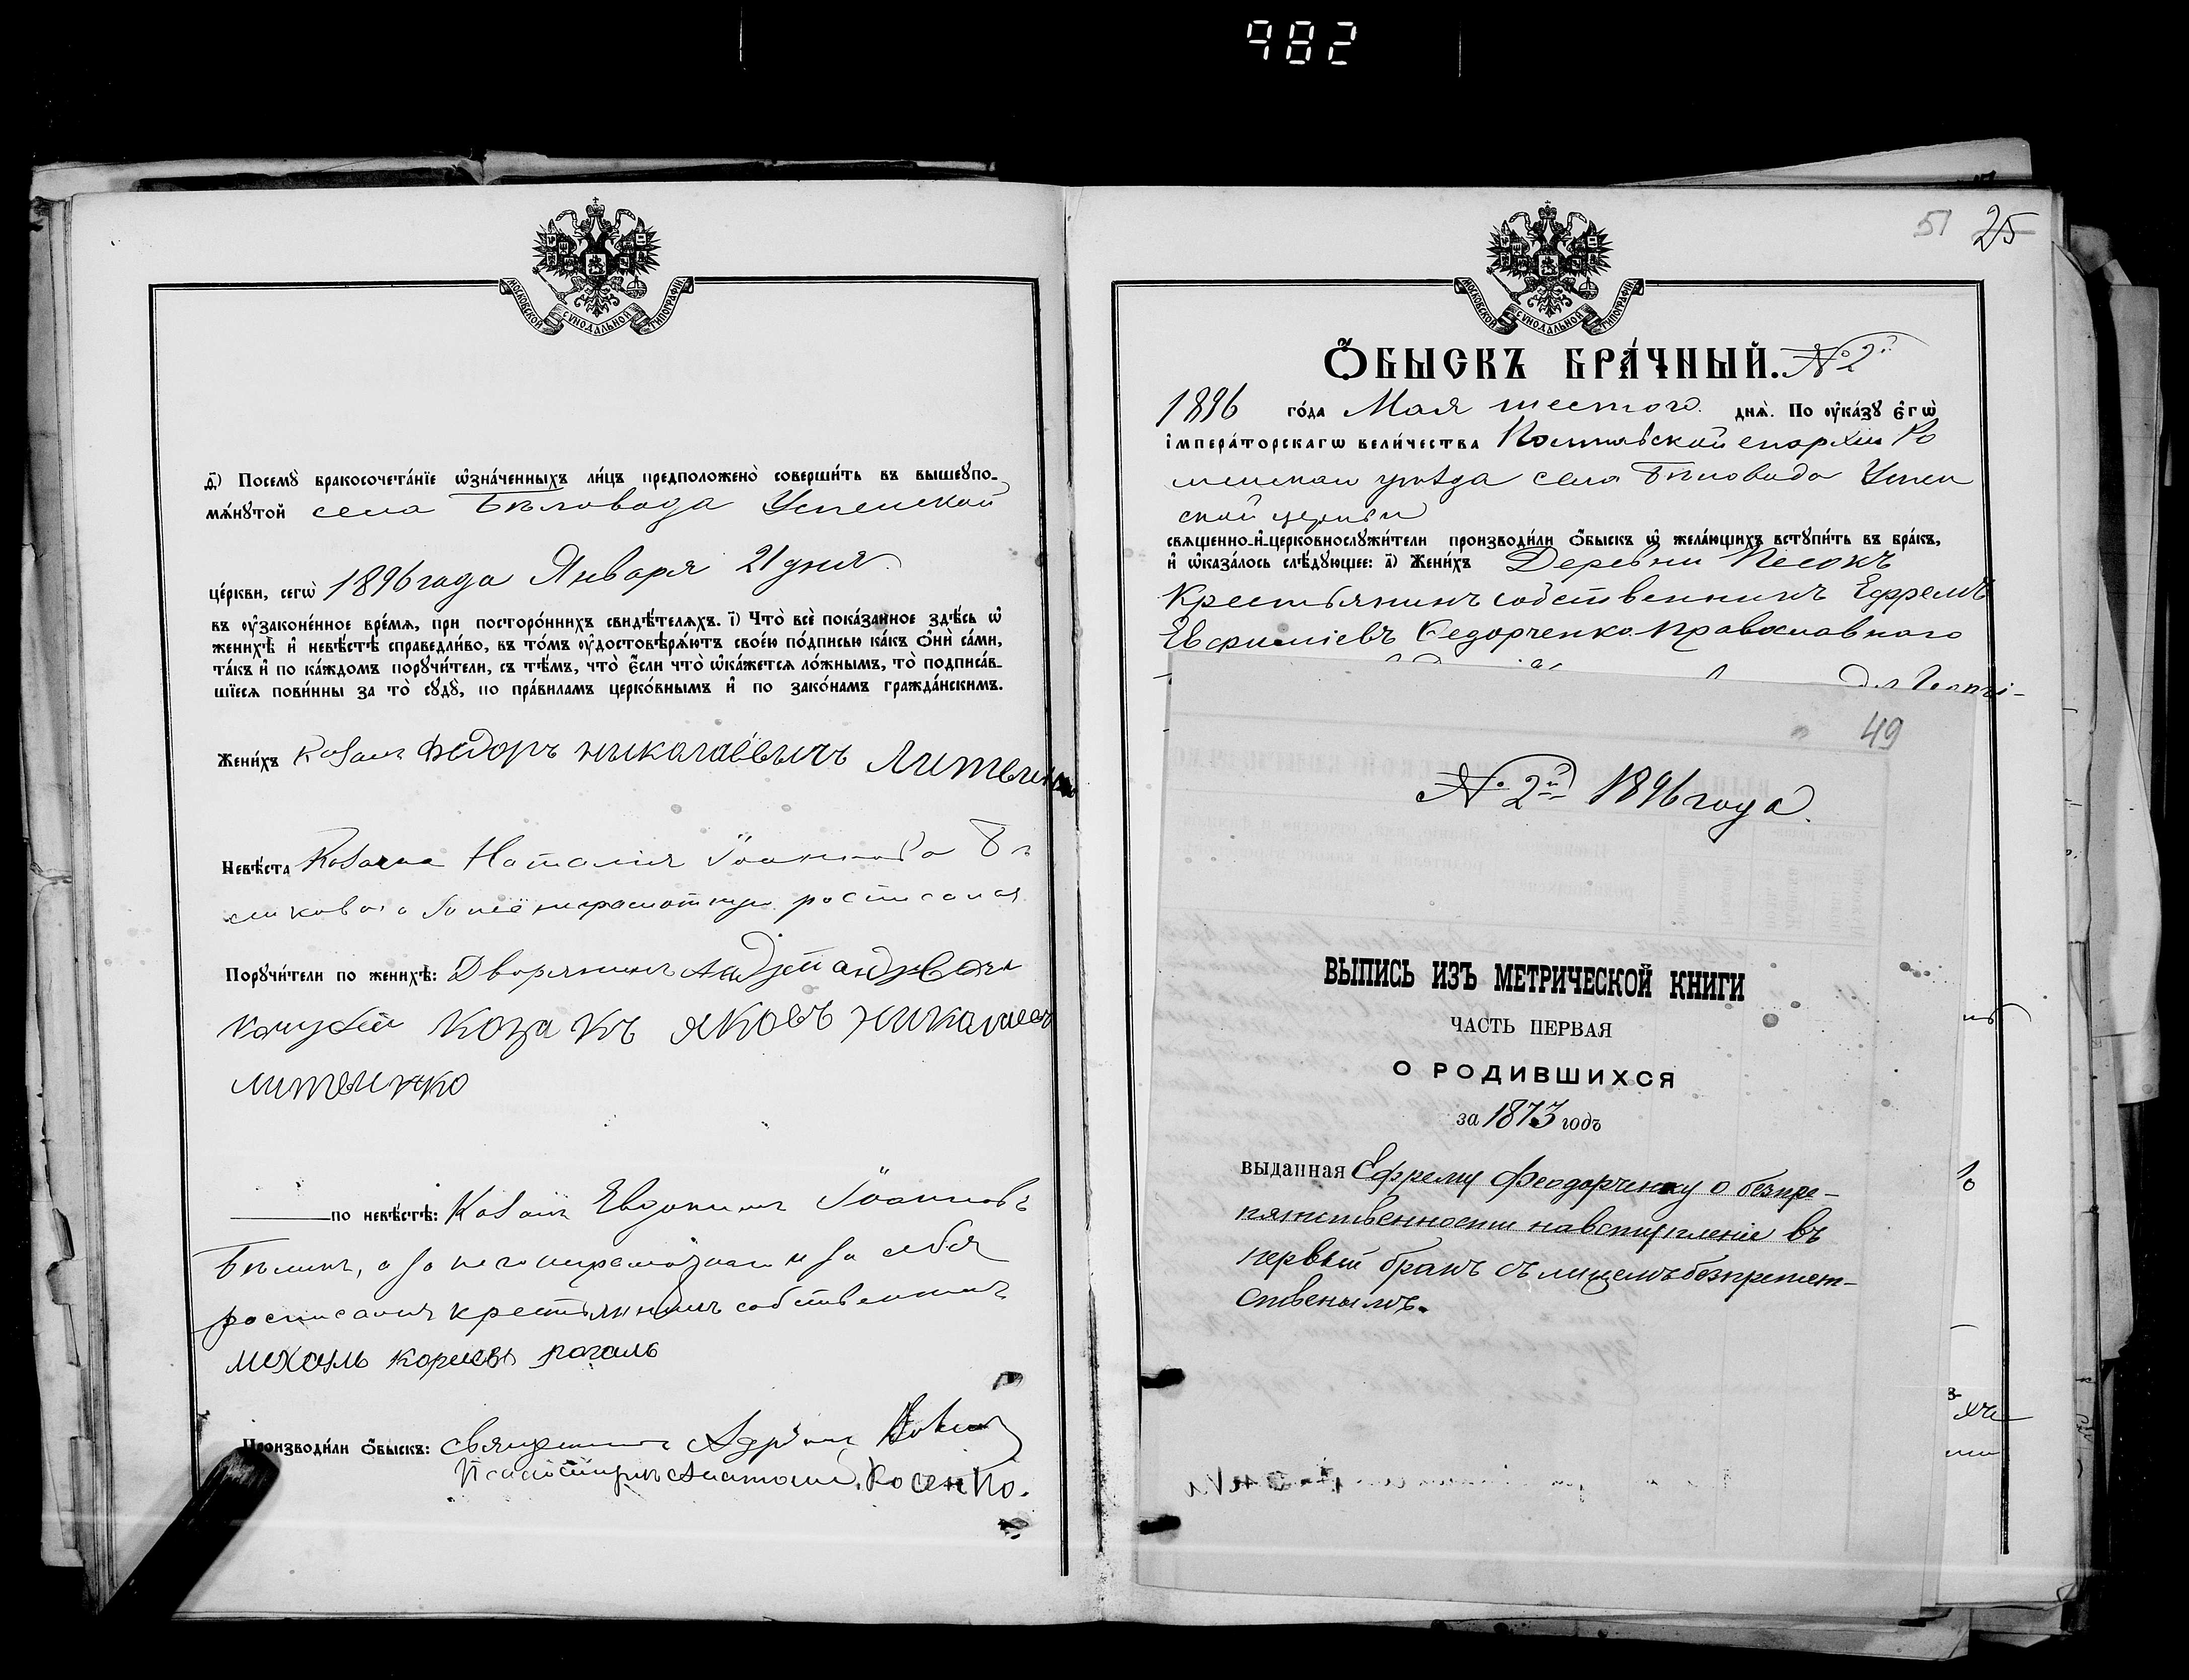 982
МОСКОВСКОЙ СѴНОДАЛЬНОЙ ТИПОГРАФІИ
ѳ҃) Посемꙋ̀ бракосочета́нїе ѡ҆зна́ченныхъ ли́цъ предположено̀ соверши́ть въ вышеꙋпо-
мѧ́нꙋтой села Бѣловода Успенской
це́ркви, сегѡ̀ 1896 года Января 21 дня
въ ᲂу҆законе́нное вре́мѧ, при посторо́ннихъ свидѣ́телѧхъ. і҃) Что̀ всѐ пока́занное здѣ́сь ѡ҆
женихѣ̀ и҆ невѣ́стѣ справедли́во, въ то́мъ ᲂу҆достовѣрѧ́ютъ свое́ю по́дписью ка́къ ѻ҆нѝ са́ми,
та́къ и҆ по ка́ждомъ порꙋчи́тели, съ тѣ́мъ, что̀ є҆́сли что̀ ѡ҆ка́жется ло́жнымъ, то̀ подписа́в-
шїесѧ пови́нны за то̀ сꙋдꙋ̀, по пра́виламъ церко́внымъ и҆ по зако́намъ гражда́нскимъ.
Жени́хъ Козакъ Фѣдоръ николаевичъ Литвинко
Невѣ́ста Козачка Наталія Іоаннова Бѣ
ликова а за неё неграмотную росписался
Порꙋчи́тели по женихѣ̀: Дворянинъ
козакъ яковъ николаевъ
литвинко
по невѣ́стѣ: Козакъ Евдокимъ Іоанновъ
Бѣликъ, а за него неграмотнаго и за себя
росписался крестьянинъ собственникъ
михаилъ
Производи́ли ѻ҆́быскъ: священникъ Адріанъ
Псаломщикъ Анатолій Косенко.
51 25
МОСКОВСКОЙ СѴНОДАЛЬНОЙ ТИПОГРАФІИ
Ѻ҆́БЫСКЪ БРА́ЧНЫЙ. № 2й
1896 го́да Мая шестого днѧ̀. По ᲂу҆ка́зꙋ є҆гѡ̀
і҆мпера́торскагѡ вели́чества Полтавской епархіи Ро
менскаго уѣзда села Бѣловода Успен
ской церкви
свѧще́нно-и҆-церковнослꙋжи́тели производи́ли ѻ҆́быскъ ѡ҆ жела́ющихъ встꙋпи́ть въ бра́къ,
и҆ ѡ҆каза́лось слѣ́дꙋющее: а҃) Жени́хъ Деревни Песокъ
Крестьянинъ собственникъ Ефремъ
Евфиміевъ Федорченко Православнаго
49
№ 2й 1896 года.
ВЫПИСЬ ИЗЪ МЕТРИЧЕСКОЙ КНИГИ
ЧАСТЬ ПЕРВАЯ
О РОДИВШИХСЯ
за 1873 годъ
выданная Ефрему Феодорченку о безпре-
пятственности на вступленіе въ
первый бракъ съ лицемъ безпрепят-
ственымъ.